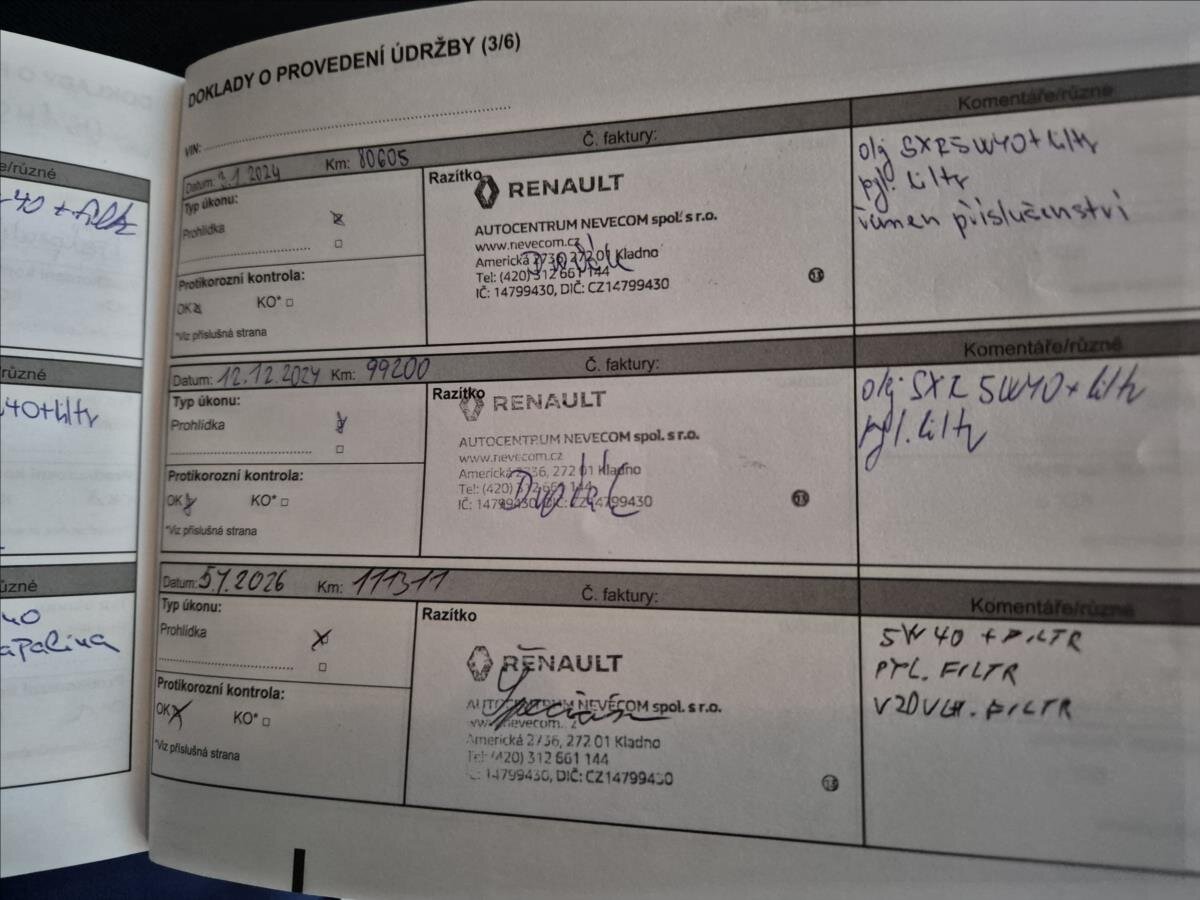 DOKLADY O PROVEDENÍ ÚDRŽBY (3/6)
VIN:
e/různé
-40 + filtr
různé
40+filtr
ůzné
40
apalina
Datum: 3.1.2024 Km: 80605 Č. faktury: Komentáře/různé
Typ úkonu:
Prohlídka
Protikorozní kontrola:
OK KO*
*Viz příslušná strana
Razítko
RENAULT
AUTOCENTRUM NEVECOM spol. s r.o.
www.nevecom.cz
Americká 2736, 272 01 Kladno
Tel: (420) 312 661 144
IČ: 14799430, DIČ: CZ14799430
13
olej SXR 5W40 + filtr
pyl. filtr
řemen příslušenství
Datum: 12.12.2024 Km: 99200 Č. faktury: Komentáře/různé
Typ úkonu:
Prohlídka
Protikorozní kontrola:
OK KO*
*Viz příslušná strana
Razítko
RENAULT
AUTOCENTRUM NEVECOM spol. s r.o.
www.nevecom.cz
Americká 2736, 272 01 Kladno
Tel: (420) 312 661 144
IČ: 14799430, DIČ: CZ14799430
Dvořák
13
olej SXR 5W40 + filtr
pyl. filtr
Datum: 5.1.2026 Km: 111311 Č. faktury: Komentáře/různé
Typ úkonu:
Prohlídka
Protikorozní kontrola:
OK KO*
*Viz příslušná strana
Razítko
RENAULT
AUTOCENTRUM NEVECOM spol. s r.o.
www.nevecom.cz
Americká 2736, 272 01 Kladno
Tel: (420) 312 661 144
IČ: 14799430, DIČ: CZ14799430
13
5W40 + FILTR
PYL. FILTR
VZDUCH. FILTR